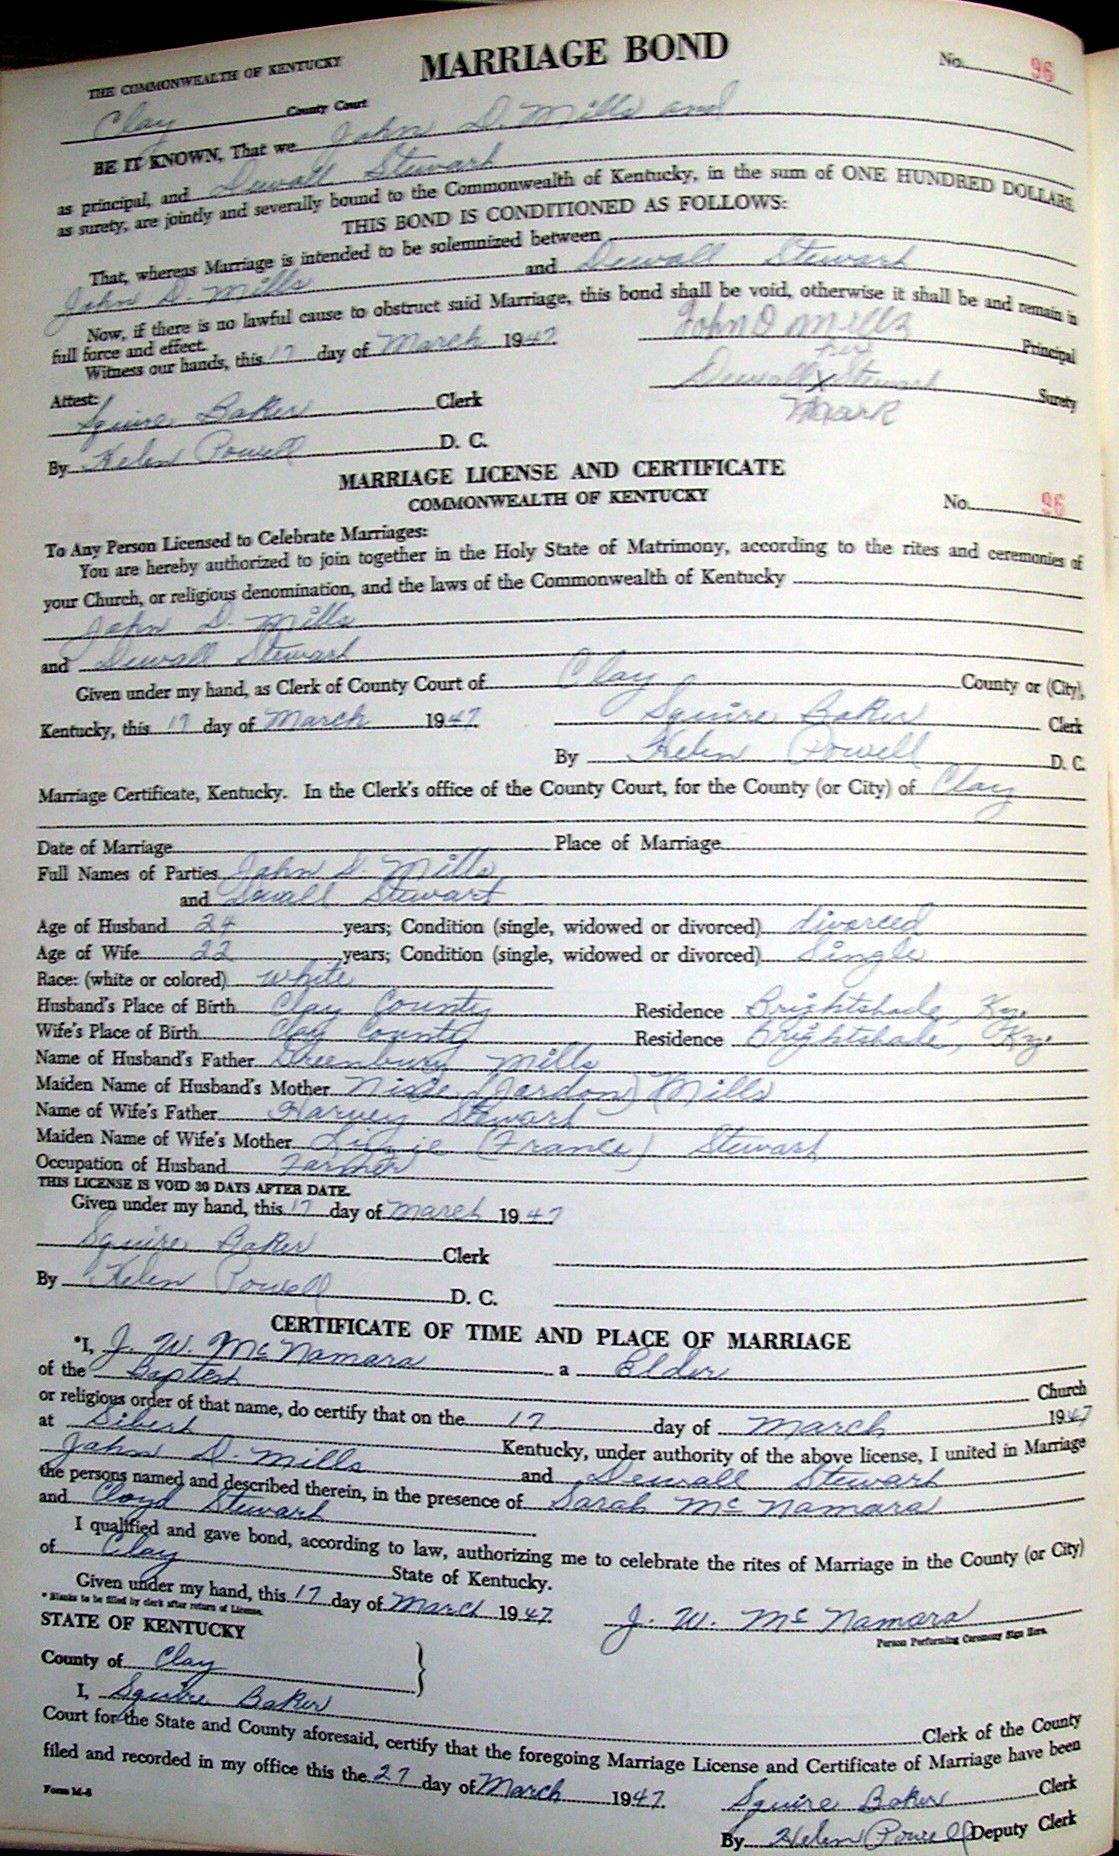 THE COMMONWEALTH OF KENTUCKY
MARRIAGE BOND
No. 96
Clay County Court
BE IT KNOWN, That we John D. Mills and
as principal, and Dewall Stewart
as surety, are jointly and severally bound to the Commonwealth of Kentucky, in the sum of ONE HUNDRED DOLLARS.
THIS BOND IS CONDITIONED AS FOLLOWS:
That, whereas Marriage is intended to be solemnized between
John D. Mills and Dewall Stewart
Now, if there is no lawful cause to obstruct said Marriage, this bond shall be void, otherwise it shall be and remain in
full force and effect.
Witness our hands, this 17 day of March 1947 John D Mills Principal
her
Attest: Dewall x Stewart Surety
Squire Baker Clerk Mark
By Helen Powell D. C.
MARRIAGE LICENSE AND CERTIFICATE
COMMONWEALTH OF KENTUCKY
No. 96
To Any Person Licensed to Celebrate Marriages:
You are hereby authorized to join together in the Holy State of Matrimony, according to the rites and ceremonies of
your Church, or religious denomination, and the laws of the Commonwealth of Kentucky
John D. Mills
and Dewall Stewart
Given under my hand, as Clerk of County Court of Clay County or (City),
Kentucky, this 17 day of March 1947. Squire Baker Clerk
By Helen Powell D. C.
Marriage Certificate, Kentucky. In the Clerk's office of the County Court, for the County (or City) of Clay
Date of Marriage Place of Marriage
Full Names of Parties John D. Mills
and Dewall Stewart
Age of Husband 24 years; Condition (single, widowed or divorced) divorced
Age of Wife 22 years; Condition (single, widowed or divorced) Single
Race: (white or colored) White
Husband's Place of Birth Clay County Residence Brightshade, Ky.
Wife's Place of Birth Clay County Residence Brightshade, Ky.
Name of Husband's Father Greenbury Mills
Maiden Name of Husband's Mother (Jardon) Mills
Name of Wife's Father Harvey Stewart
Maiden Name of Wife's Mother Lizzie (France) Stewart
Occupation of Husband Farmer
THIS LICENSE IS VOID 30 DAYS AFTER DATE.
Given under my hand, this 17 day of March 1947
Squire Baker Clerk
By Helen Powell D. C.
CERTIFICATE OF TIME AND PLACE OF MARRIAGE
*I, J. W. McNamara a Elder
of the Baptist Church
or religious order of that name, do certify that on the 17 day of March 1947
at Sibert Kentucky, under authority of the above license, I united in Marriage
John D. Mills and Dewall Stewart
the persons named and described therein, in the presence of Sarah McNamara
and Cloyd Stewart
I qualified and gave bond, according to law, authorizing me to celebrate the rites of Marriage in the County (or City)
of Clay State of Kentucky.
Given under my hand, this 17 day of March 1947. J. W. McNamara
* Blanks to be filled by clerk after return of License. Person Performing Ceremony Sign Here.
STATE OF KENTUCKY
County of Clay
I, Squire Baker Clerk of the County
Court for the State and County aforesaid, certify that the foregoing Marriage License and Certificate of Marriage have been
filed and recorded in my office this the 27 day of March 1947.
Form M-8 Squire Baker Clerk
By Helen Powell Deputy Clerk